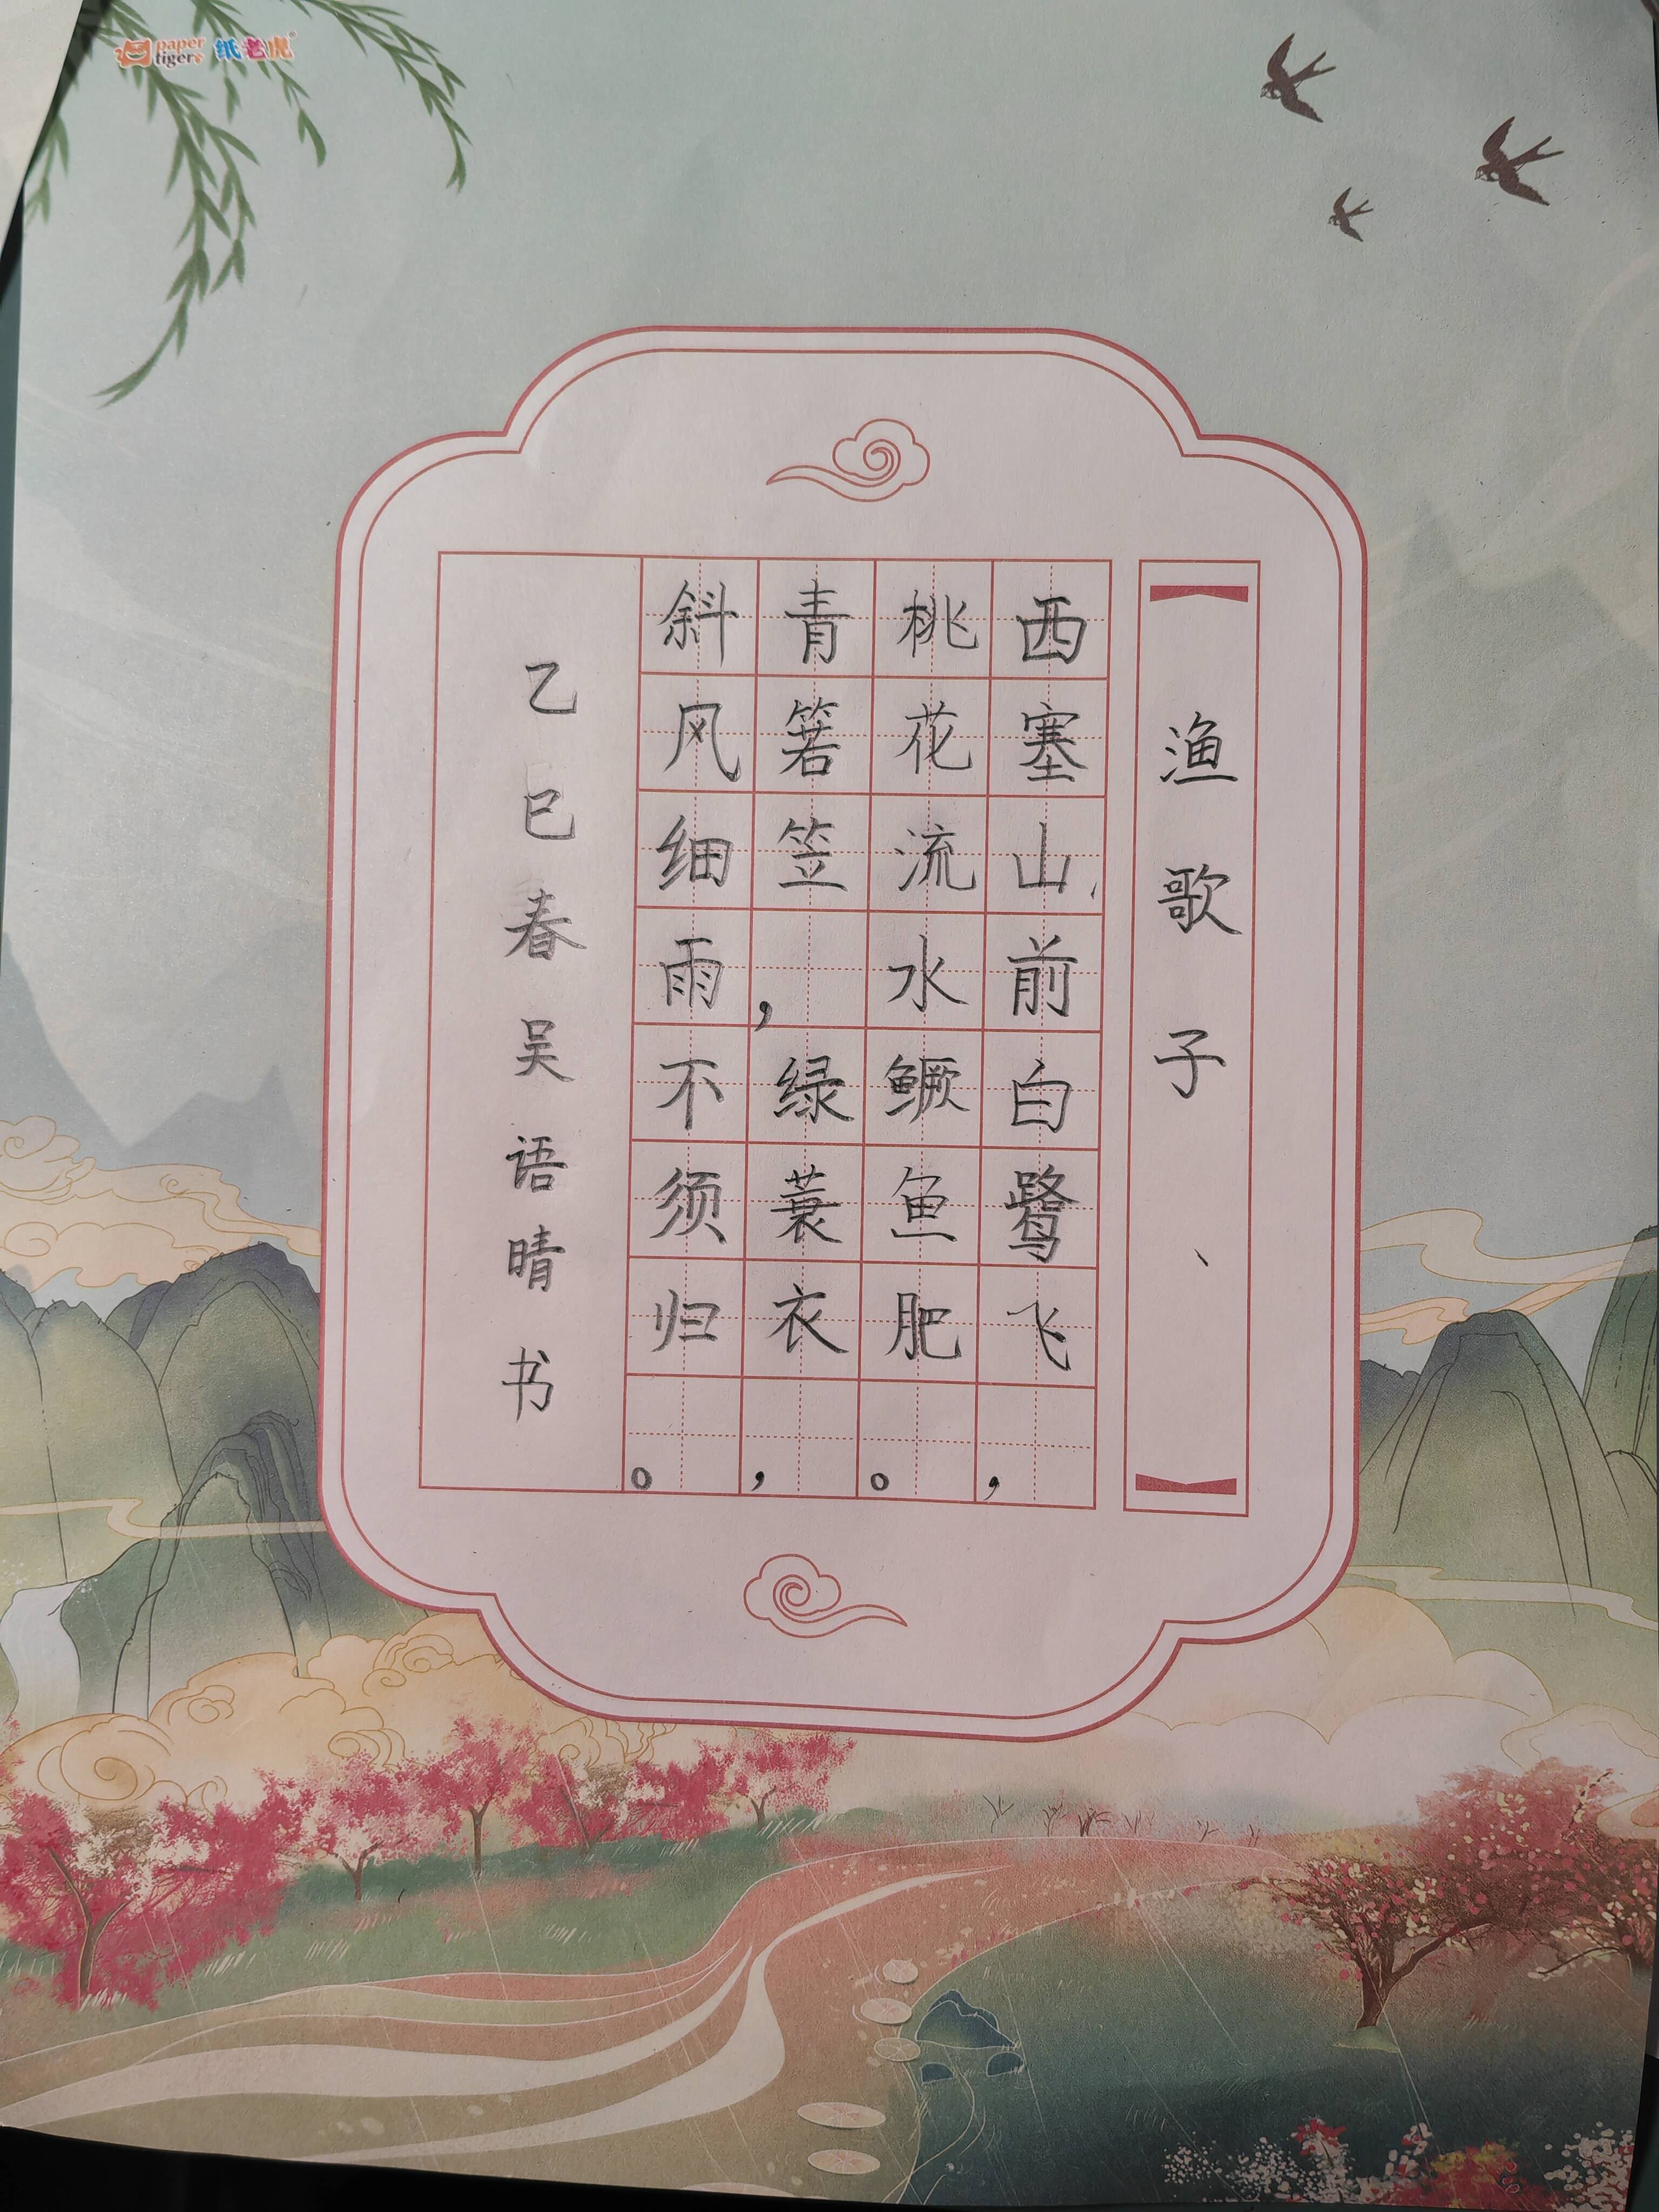 paper tiger 纸老虎
渔歌子、
西塞山前白鹭飞，
桃花流水鳜鱼肥。
青箬笠，绿蓑衣，
斜风细雨不须归。
乙巳春吴语晴书